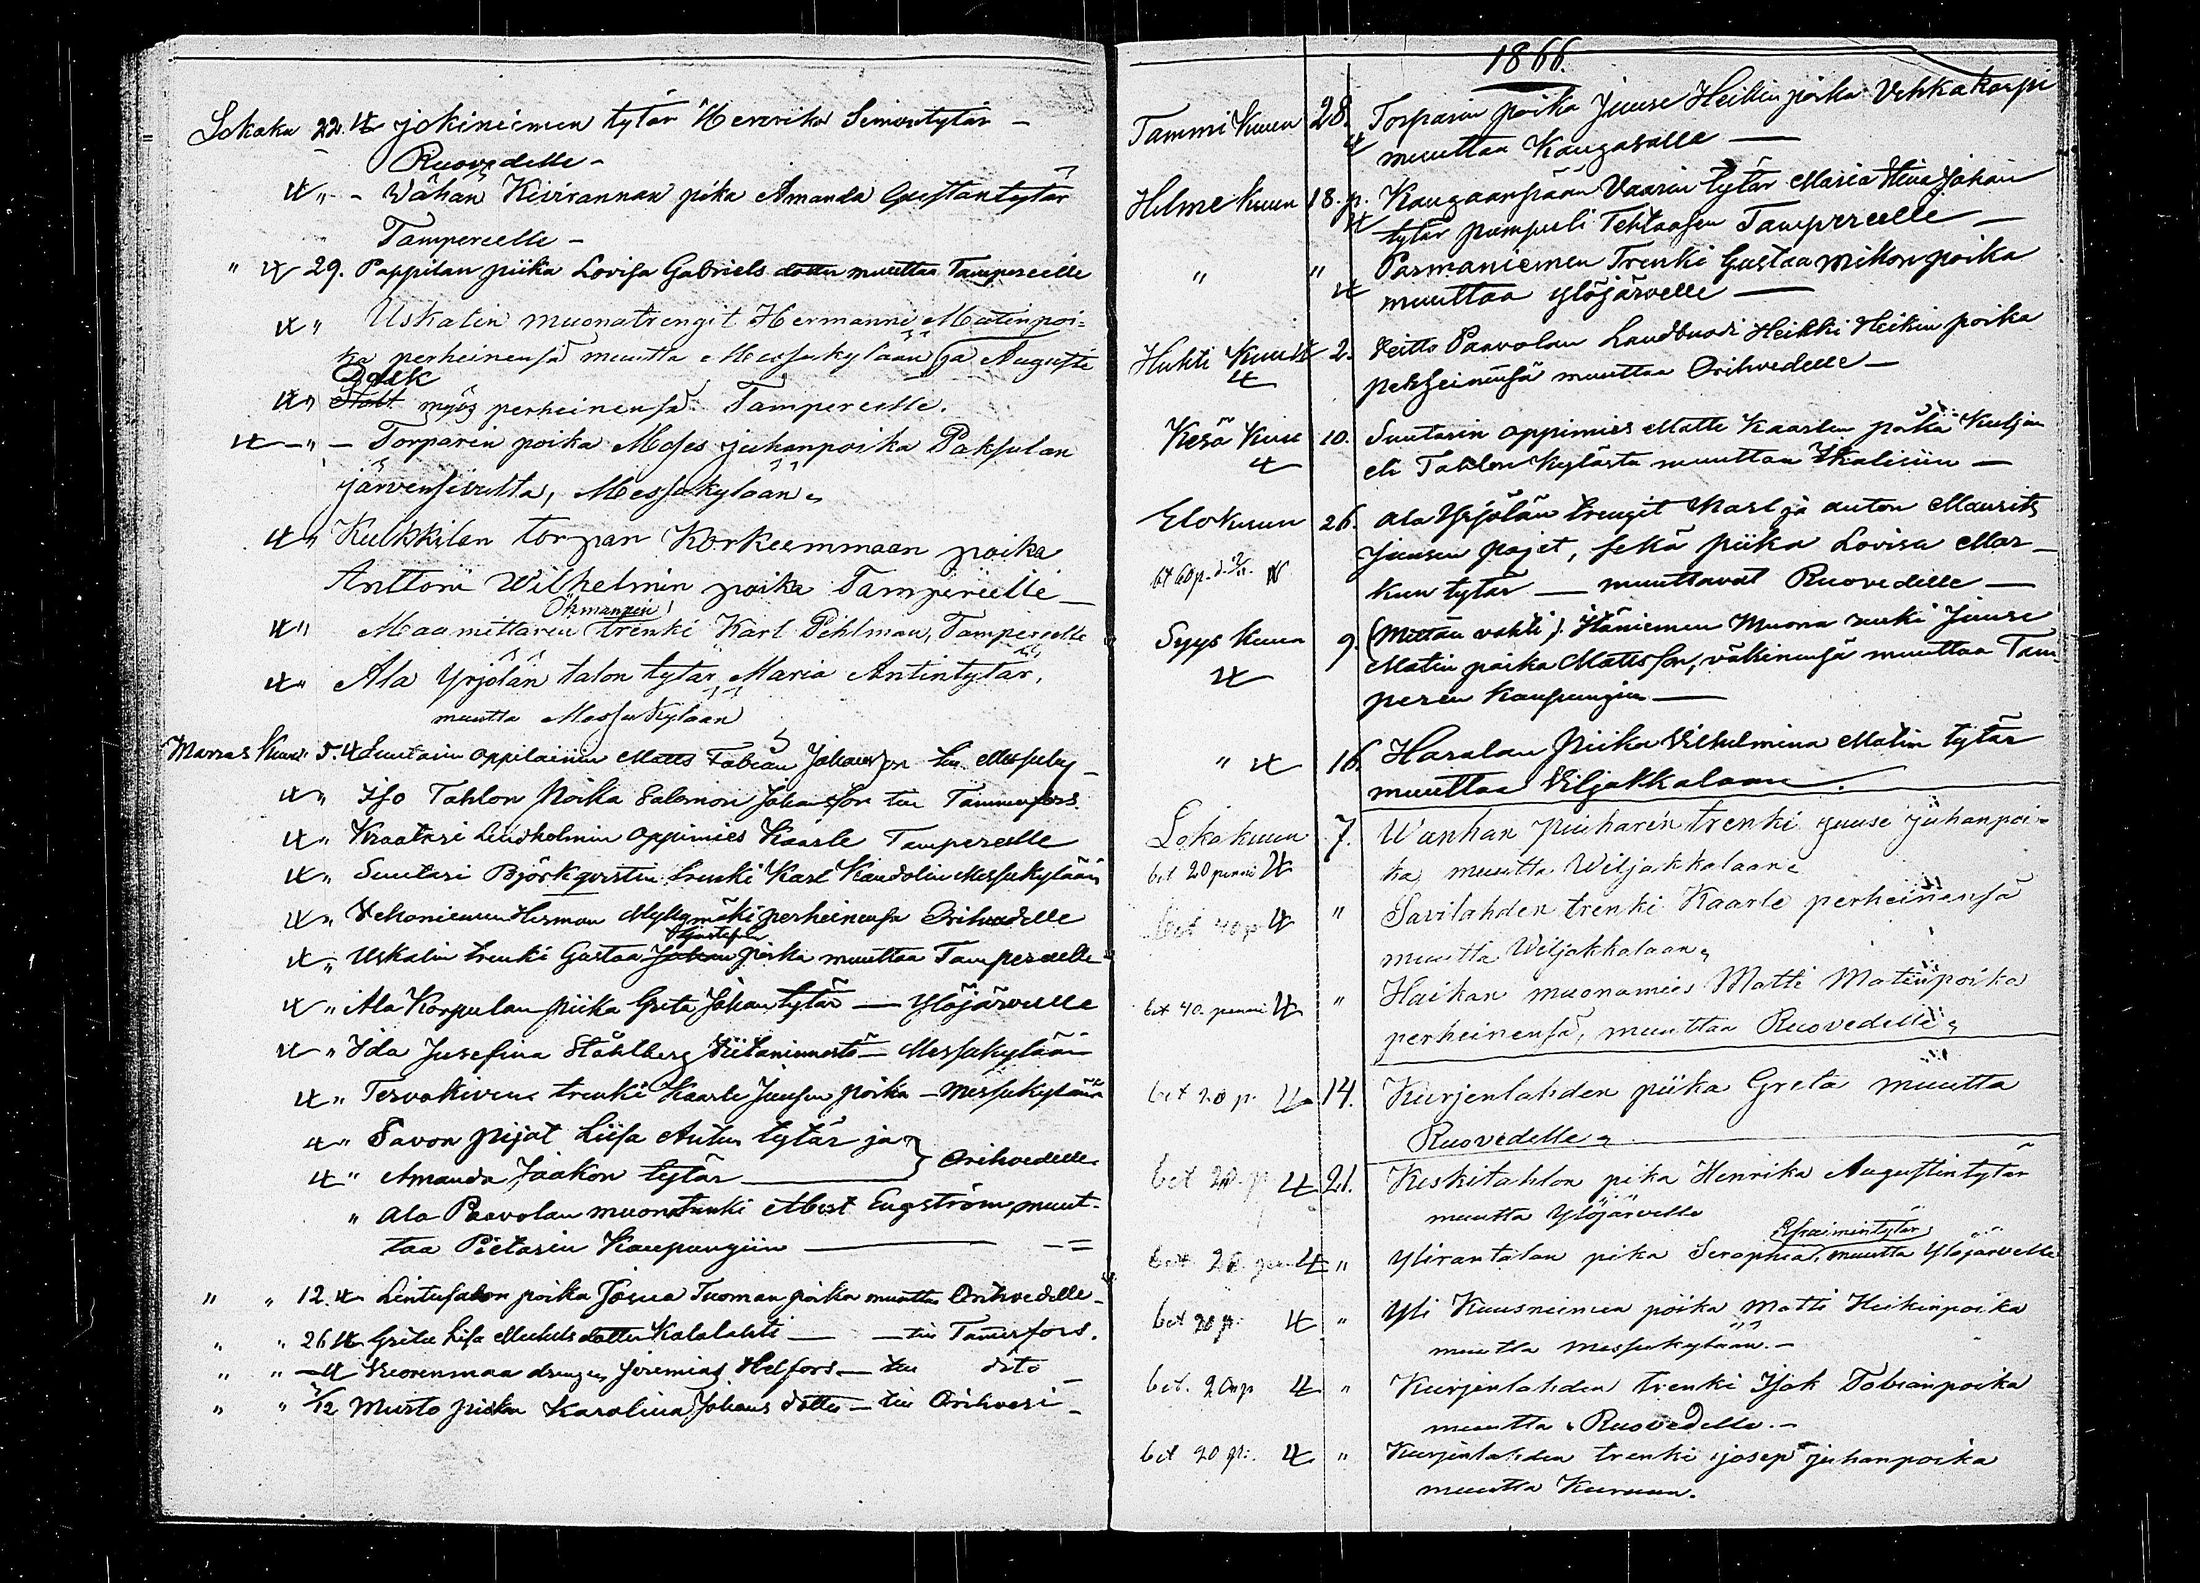 Lokaku 22. 4 jokiniemen tytär Henrika Simontytär –
Ruovedelle –
4 " – Wähän Kivirannan pika Amanda Gustantytär
Tampereelle –
" 4 29. Pappilan piika Lovisa Gabriels dotter muuttaa Tampereelle
4 " Uskalin muonatrengit Hermanni Matinpoi=
ka perheinensä muutta Messukylään ja Auguste
Dalk
4 " Stolt myös perheinensä Tampereelle.
4 – " – Torparin poika Moses juhanpoika Paksulan
järvensivulta, Messukylään
4 " Kulkkilan torpan Korkeemmaan poika
Anttoni Wilhelmin poika Tampereelle –
Öhmannin
4 " Maamittaren trenki Karl Pihlman, Tampereelle
4 " Ala Yrjölän talon tytar Maria Antintytär,
muutta Messukylaan
Marras Kuus 5. 4 Suutarin oppilainen Matts Fabian Johansson till Messuky –
4 " Iso Tahlon Poika Salomon Johansson till Tammerfors.
4 " Kraatari Lindholmin oppimies Kaarle Tampereelle
4 " Suutari Björkqvistin trenki Karl Kandolin Messukylään
4 " Herman Myllymäki perheinensa Orihvedelle
4 " Uskalin trenki Gustaa Johan poika muuttaa Tampereelle
4 " Ala Korpulan piika Greta Johan tytär — Ylöjärvelle
4 " Ida Josefina Ståhlberg – Messukylään
4 " Tervakiven trenki Kaarle Juusen poika – Messukylään
4 " Savon pijat Liisa Antin tytär ja
4 " Amanda Jaakon tytär — Orihvedelle
" Ala Paavolan muonatrenki Engström, muut-
taa Pietarin Kaupungiin —
" " 12. 4 Lintusalon poika Josua Tuoman poika muuttaa Orihvedelle –
" " 26 4 Greta Lisa dotter Kalalahti — till Tamerfors.
" " – 4 Vuorenmaa drengen Jeremias Helfors — till dito –
" " 3/12 Musto piikan Karolina Johans dotter – till Orihvesi –
1866.
Tammi Kuun 28. Torparin poika Juuse Heikin poika Vehkakorpi
4 muuttaa Kangasalle —
Helme Kuun 18. p. Kangaanpään Vaarin tytär Maria Stina Johan
4 tytär pumpuli Tehtaasen Tampereelle —
" " Parmaniemen Trenki Gustaa Mikon poika
4 muuttaa ylöjärvelle —
Huhti Kuun 2. Keitto Paavolan Landbuodi Heikki Heikin poika
4 perheinensä muuttaa Orihvedelle —
Kesä Kuu 10. Suutarin oppimies Matte Kaarlen poika Kuljun
4 eli Tahlon Kylästa muuttaa Ikalisiin —
Elokuun 26. Ala Yrjölän trengit Karl ja Anton Maurits
bet 60 p. Juusen pojat, sekä piika Lovisa Mar –
kun tytär — muuttavat Ruovedelle —
Syys Kuun 9. (Mettän vahti) Itäniemen Muona renki Juuse
4 Matin poika Matsson, väkinensä muuttaa Tam
peren Kaupungin —
" 4 16. Haralan Piika Vilhelmina Matin tytär
muuttaa Viljakkalaan.
Lokakuun 7. Wanhan Pinharin trenki juuse juhanpoi-
bet 20 penni 4 ka muutta Wiljakkalaan
bet 40 p 4 " Savilahden trenki Kaarle perheinensä
muutta Wiljakkalaan
bet 40. penni 4 " Haikan muonamies Matti Matinpoika
perheinensä, muuttaa Ruovedelle
bet 20 p. 4 14. Kurjenlahden piika Greta muutta
Ruovedelle
bet 20 p 4 21. Keskitahlon pika Henrika Augustintytär
muutta Ylöjärvelle
Efraimintytär
bet 20 4 " Ylirantalan pika Seraphia, muutta Ylöjärvelle
bet 20 p. 4 " Yli Kuusneimen poika Matti Heikinpoika
muutta Messukylään. –
bet. 20 p 4 " Kurjenlahden trenki Isak Tobianpoika
muutta Ruovedelle. –
bet 20 p. 4 " Kurjenlahden trenki josep juhanpoika
muutta Kuruun.